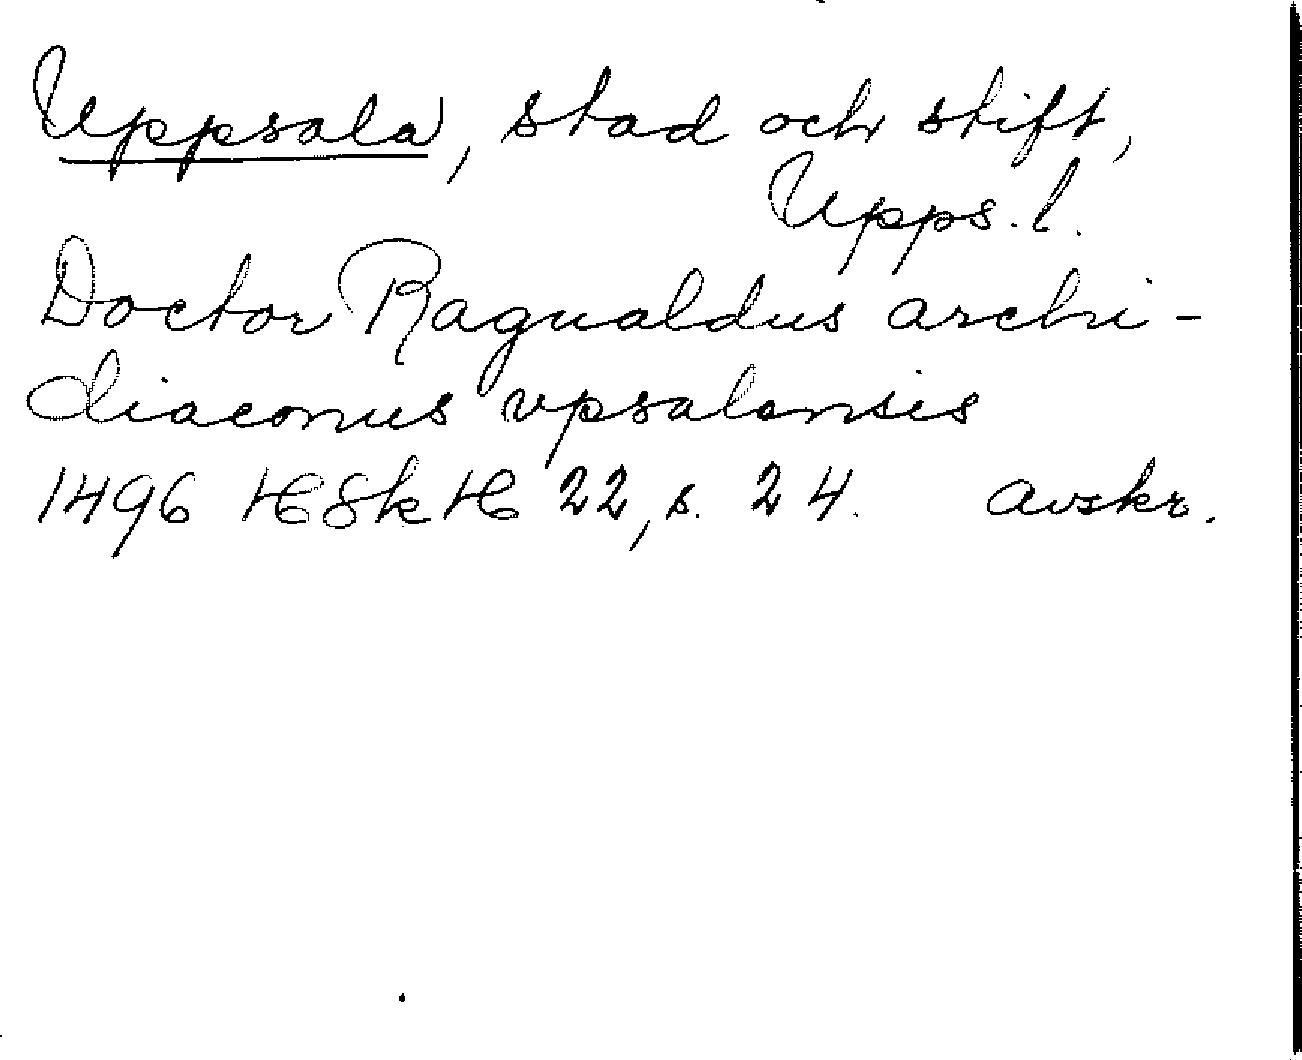 Uppsala, stad och stift,
Upps. l.
Doctor Ragualdus archi-
diaconus vpsalensis
1496 HSkH 22, s. 24. avskr.